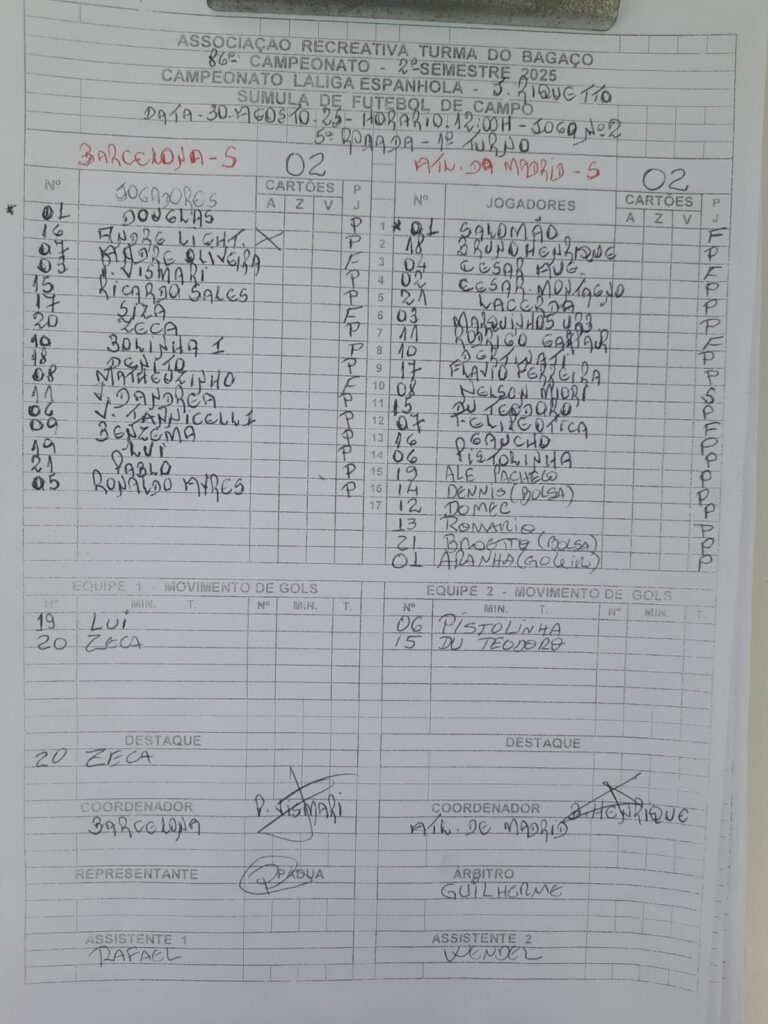 ASSOCIAÇÃO RECREATIVA TURMA DO BAGAÇO
86º CAMPEONATO - 2º SEMESTRE 2025
CAMPEONATO LALIGA ESPANHOLA - J. RIQUETTO
SUMULA DE FUTEBOL DE CAMPO
DATA - 30. AGOSTO. 25 - HORARIO. 12:00H - JOGO Nº 2
5º RODADA - 1º TURNO
BARCELONA - S 02 ATL. DA MADRID - S 02
Nº JOGADORES CARTÕES P Nº JOGADORES CARTÕES P
A Z V J A Z V J
* 01 DOUGLAS P 1 * 01 SALOMÃO F
16 ANDRE LIGHT. X P 2 18 BRUNO HENRIQUE P
07 ANDRE OLIVEIRA F 3 CESAR AUG. F
03 P. VISMARI P 4 02 CESAR MONTAGNO P
15 RICARDO SALES P 5 21 LACERDA P
17 SIZA F 6 03 MARQUINHOS P
20 ZECA P 7 11 RODRIGO F
10 BOLINHA I P 8 10 P
18 DENITO P 9 17 FLAVIO PERREIRA P
08 MATHEUZINHO F 10 08 NELSON MIORI S
11 V. DANDREA P 11 15 DU TEODORO P
06 V. IANNICELLI P 12 07 F
09 BENZEMA P 13 16 GAUCHO P
19 LUI P 14 06 PISTOLINHA P
21 PABLO P 15 19 ALE PACHECO P
05 RONALDO AYRES P 16 14 DENNIS (BOLSA) P
17 12 DOMEC P
13 ROMARIO P
21 BROETTO (BOLSA) P
01 ARANHA (GOLEIRO) P
EQUIPE 1 - MOVIMENTO DE GOLS EQUIPE 2 - MOVIMENTO DE GOLS
Nº MIN. T. Nº MIN. T. Nº MIN. T. Nº MIN. T.
19 LUI 06 PISTOLINHA
20 ZECA 15 DU TEODORO
DESTAQUE DESTAQUE
20 ZECA
COORDENADOR P. VISMARI COORDENADOR B. HENRIQUE
BARCELONA ATL. DE MADRID
REPRESENTANTE PADUA ÁRBITRO
GUILHERME
ASSISTENTE 1 ASSISTENTE 2
RAFAEL WENDEL